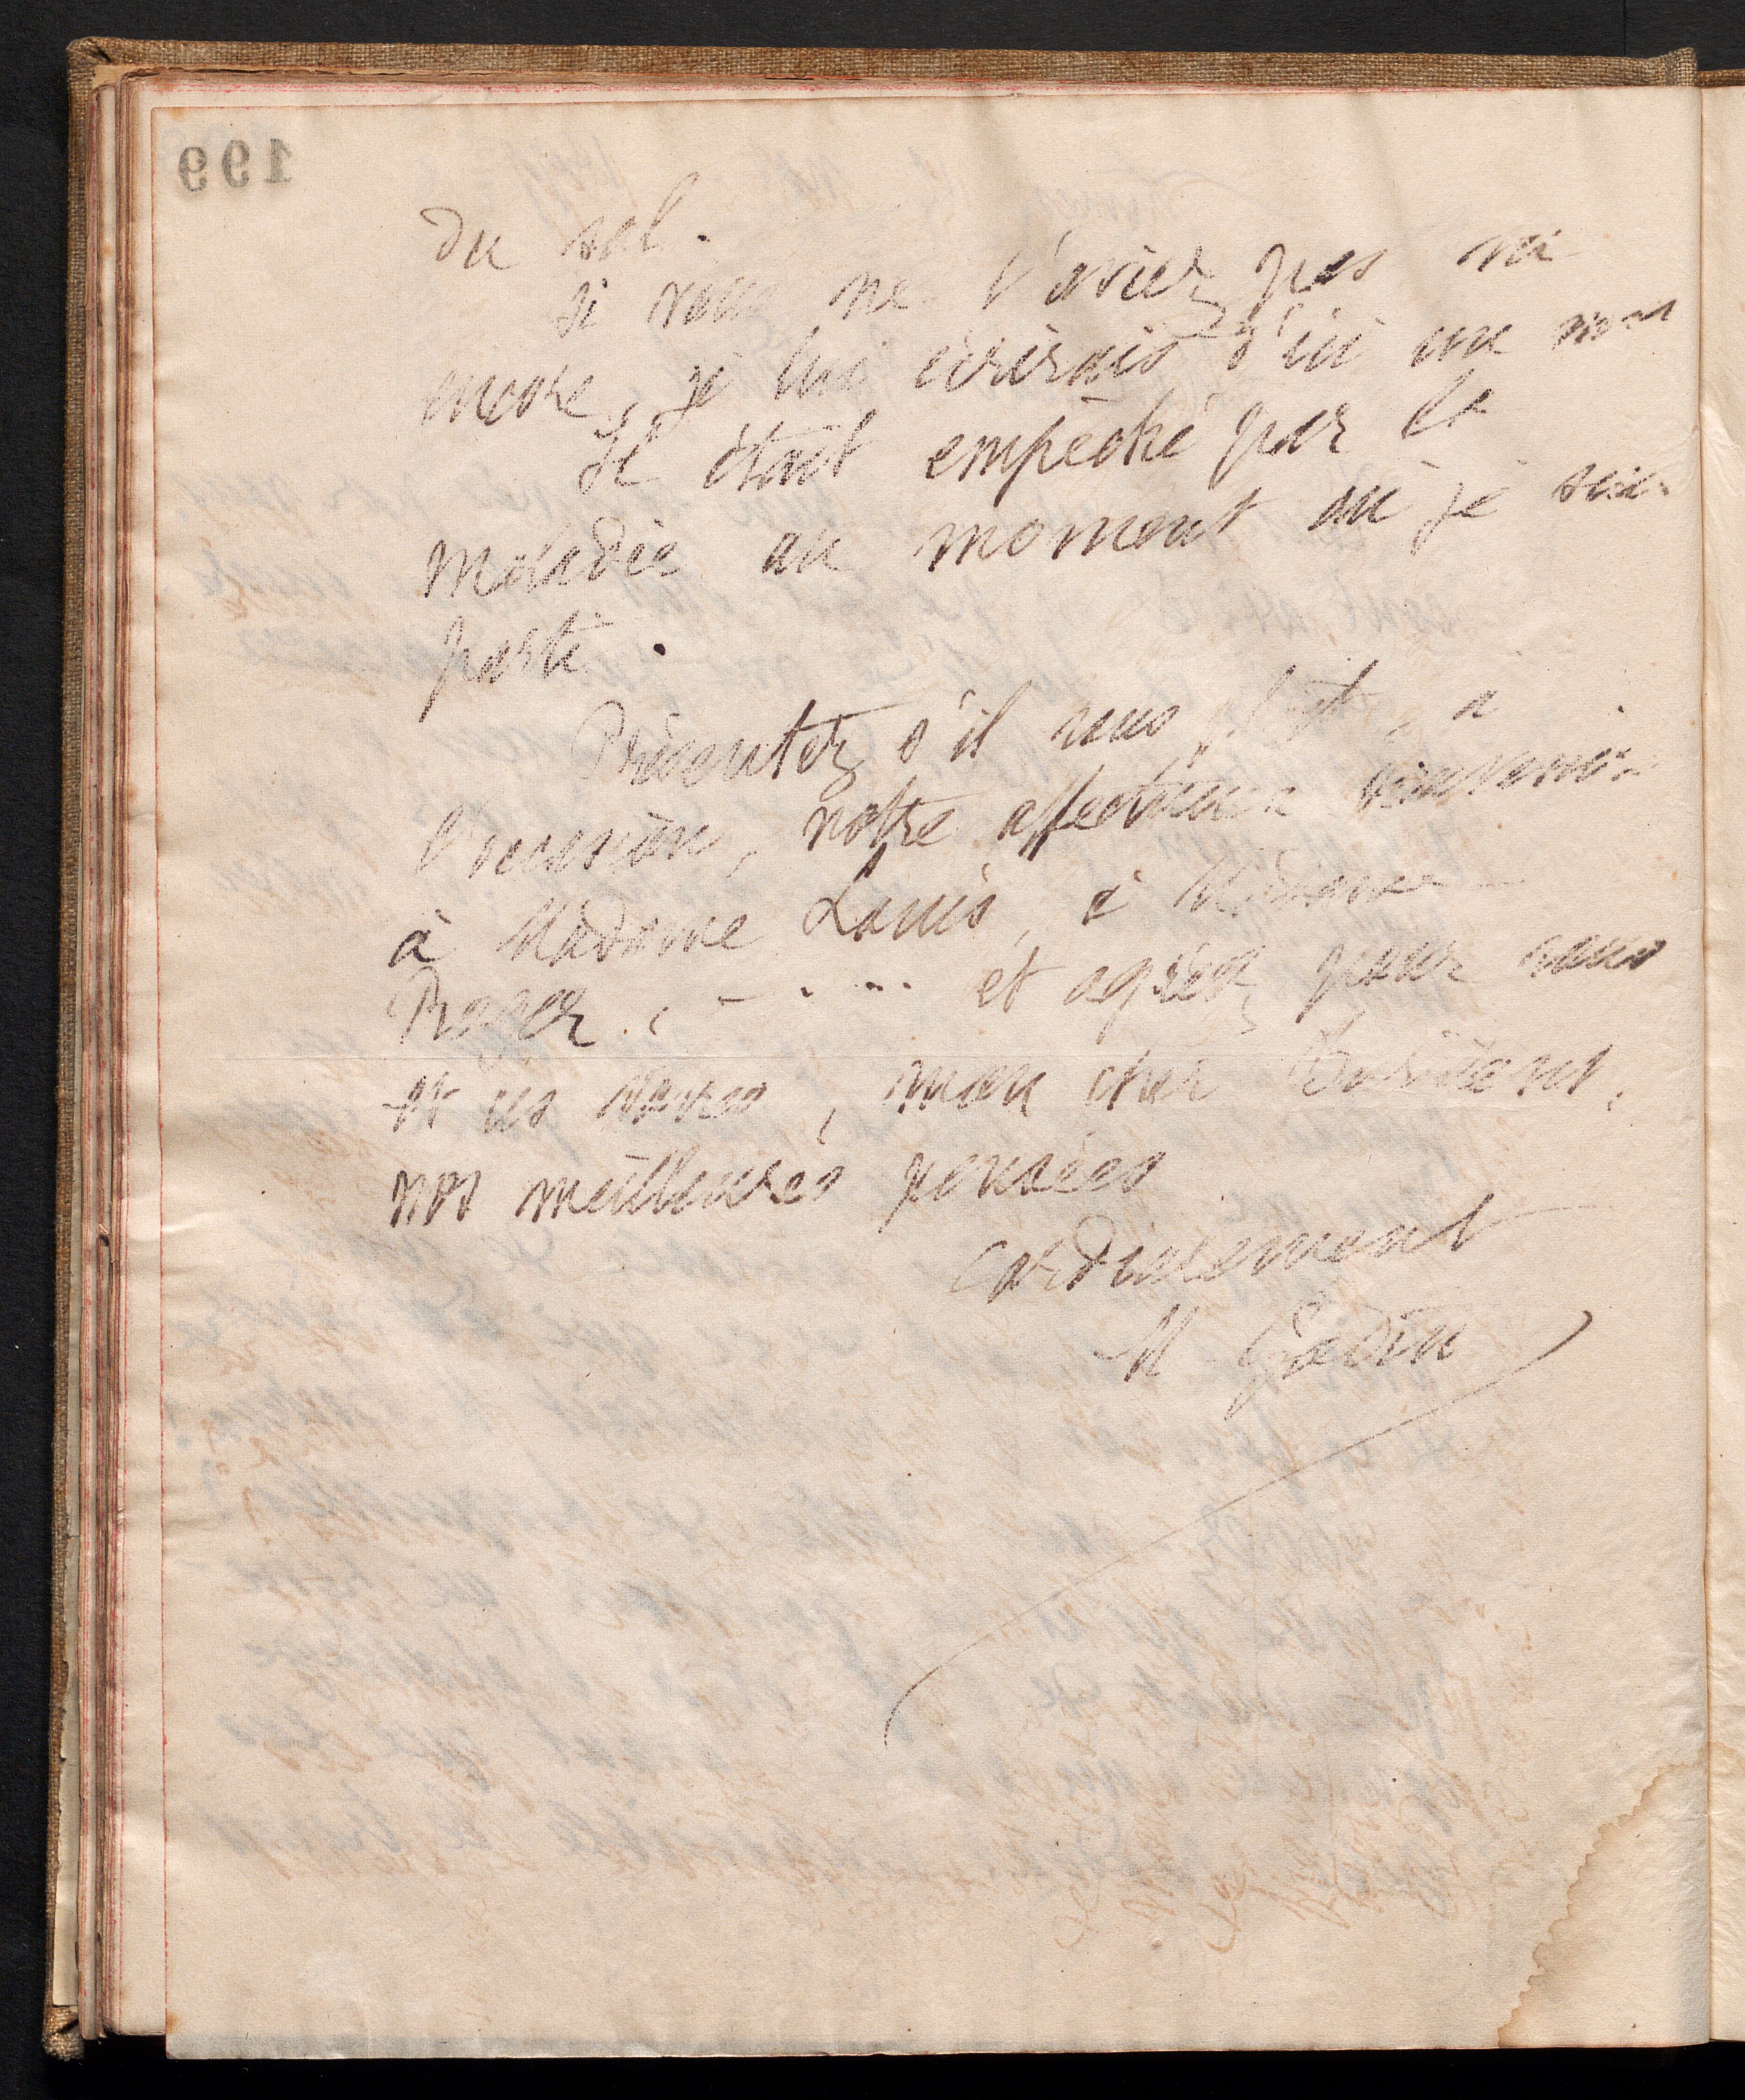 199
du sol.
si vous ne l'aviez pas vu
encore, je lui écrirais d'ici un mot
Il était empêché par la
maladie au moment où je suis
parti.
Présentez s'il vous plaît, à
l'occasion, notre affectueux souvenir
à Madame Louis, à Madame
Proper, - . . . . et agréez pour vous
et les vôtres, mon cher Président,
nos meilleures pensées
Cordialement
M Godin